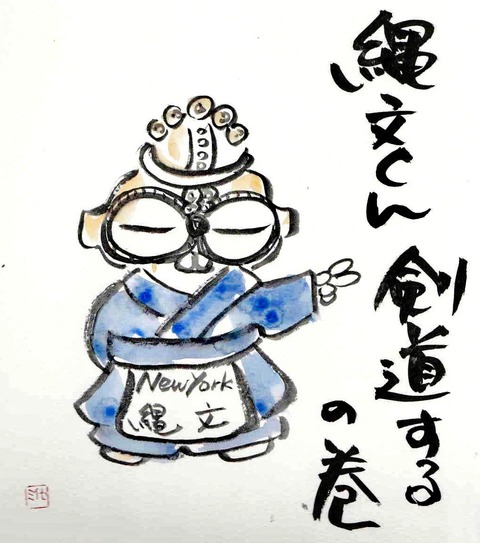 縄文くん
剣道する
の巻
NewYork
縄文